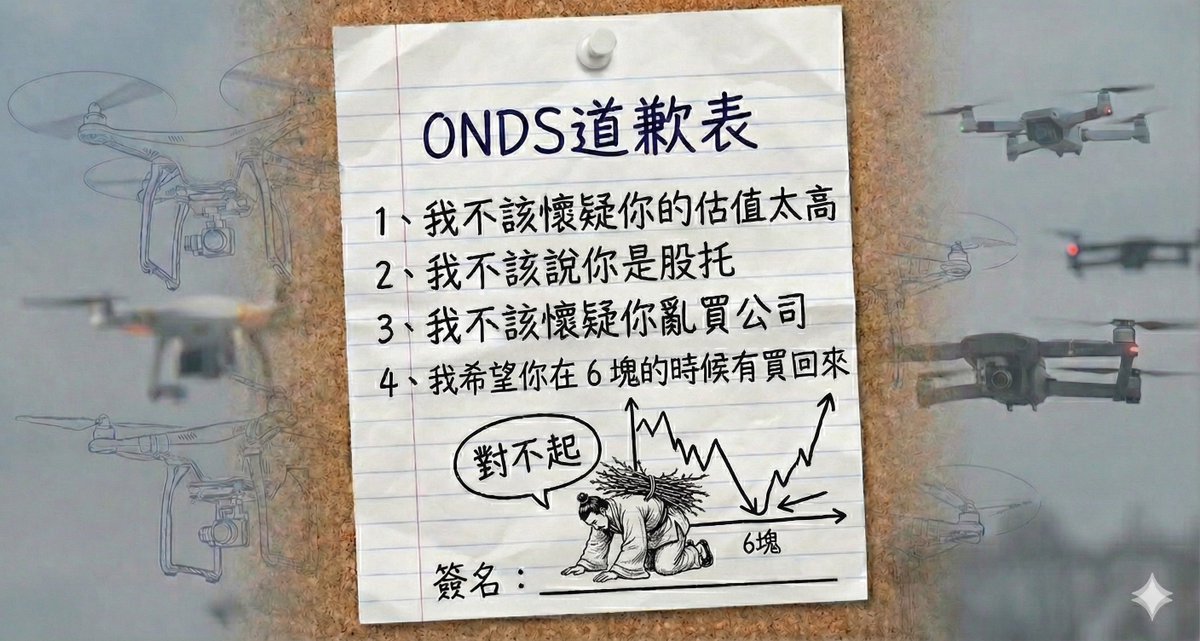 ONDS道歉表
1、我不該懷疑你的估值太高
2、我不該說你是股托
3、我不該懷疑你亂買公司
4、我希望你在6塊的時候有買回來
對不起
6塊
簽名：